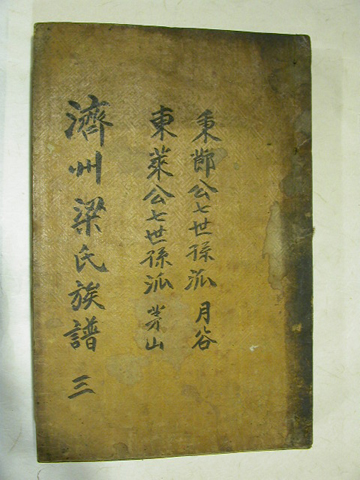 秉節公七世孫派 月谷
東萊公七世孫派 山
濟州梁氏族譜 三